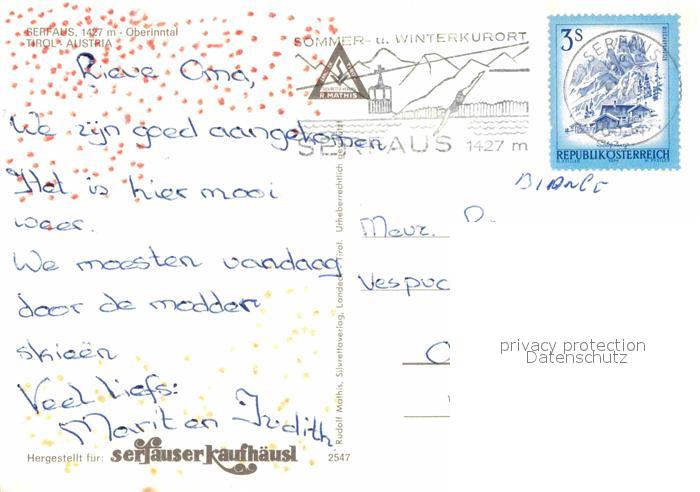 SERFAUS, 1427 m - Oberinntal
TIROL - AUSTRIA
Lieve Oma,
We zijn goed aangekomen
Het is hier mooi
weer.
We moesten vandaag
door de modder
skieën
Veel liefs:
Marit en Judith.
Hergestellt für: serfauser kaufhäusl 2547
Rudolf Mathis, Silvrettaverlag, Landeck, Tirol. Urheberrechtlich
SOMMER- u. WINTERKURORT
R. MATHIS
SERFAUS 1427 m
3S
SERFAUS
REPUBLIK ÖSTERREICH
Mevr. D.
Vespuc
privacy protection
Datenschutz